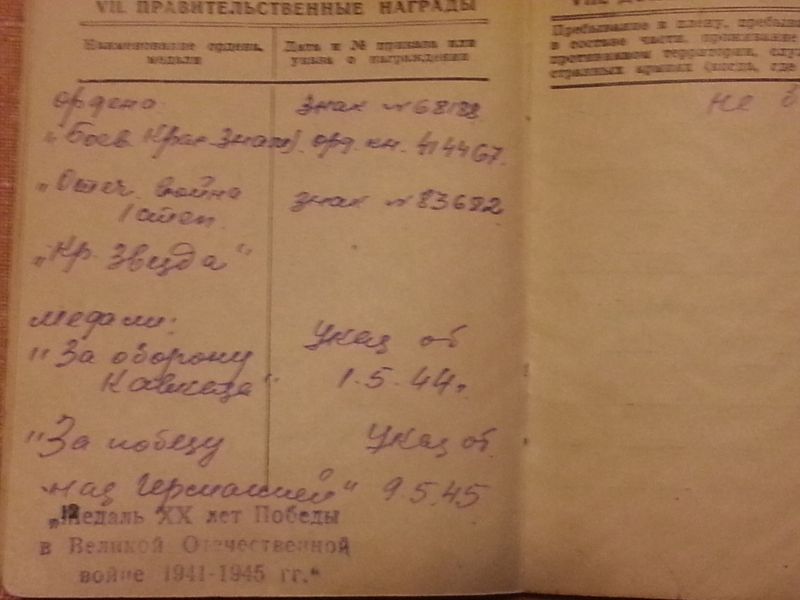 VII. ПРАВИТЕЛЬСТВЕННЫЕ НАГРАДЫ
Наименование ордена, медали
Дата и № приказа или указа о награждении
ордена:
знак №68188
„Боев. Крас. Знам." орд. кн. 414467.
„Отеч. война
1 степ.
знак №83692
„Кр. Звезда"
медали:
"За оборону
Кавказа"
Указ от
1.5.44г.
"За победу
над Германией"
Указ от
9.5.45
„Медаль XX лет Победы
в Великой Отечественной
войне 1941-1945 гг."
VIII.
Пребывание в плену,
в составе части, проживание
противником территории,
странных армиях (когда, где
не